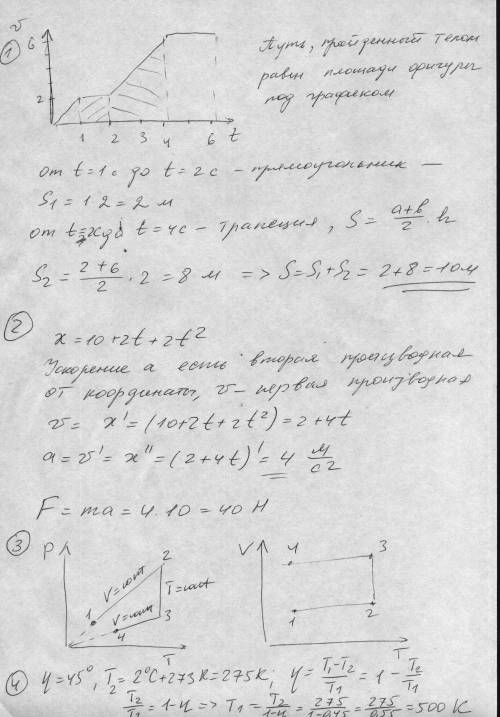 v
6
1
2
1 2 3 4 6 t
Путь, пройденный телом
равен площади фигуры
под графиком
от t=1с до t=2с – прямоугольник –
S₁ = 1·2 = 2 м
до t=4с – трапеция, S = (a+b)/2 · h
S₂ = (2+6)/2 · 2 = 8 м => S=S₁+S₂ = 2+8=10м
2
x = 10+2t+2t²
Ускорение a есть вторая производная
от координаты, v – первая производная
v = x' = (10+2t+2t²) = 2+4t
a = v' = x'' = (2+4t)' = 4 м/с2
F = ma = 4·10 = 40 Н
3
P V
2 4 3
V=const T=const
1 V=const 3
4 1 2
T T
4 η=45°, T₂=2°C+273К=275К; η=(T₁-T₂)/T₁ = 1 - T₂/T₁
T₂/T₁ = 1-η => T₁ = T₂/(1-η) = 275/(1-0,45) = 275/0,55 = 500 К